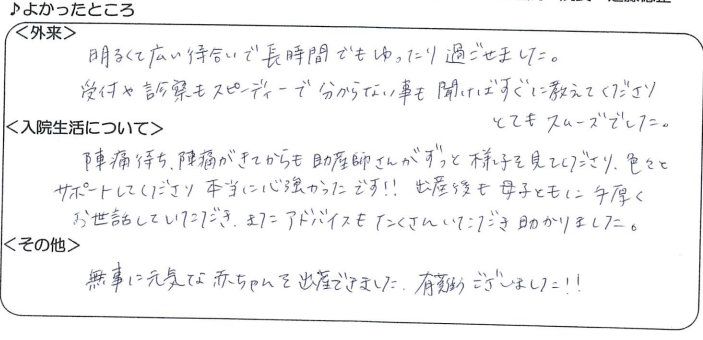 ♪よかったところ
<外来>
明るくて広い待合いで長時間でもゆったり過ごせました。
受付や診察もスピーディーで分からない事も聞けばすぐに教えてくださり
とてもスムーズでした。
<入院生活について>
陣痛待ち、陣痛がきてからも助産師さんがずっと様子を見てくださり、色々と
サポートしてくださり本当に心強かったです!! 出産後も母子ともに手厚く
お世話していただき、またアドバイスもたくさんいただき助かりました。
<その他>
無事に元気な赤ちゃんを出産できました。有難うございました!!